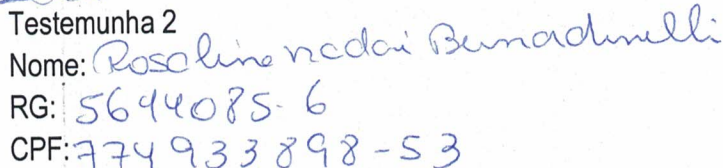 Testemunha 2
Nome: Rosaline nadai Bernadinelli
RG: 5644085-6
CPF: 774933898-53